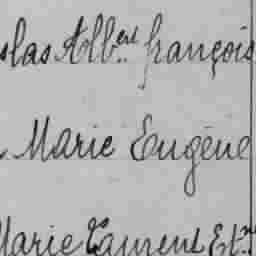 slas Alb.ert françois
Marie Eugène
Marie Laurent Et.ne